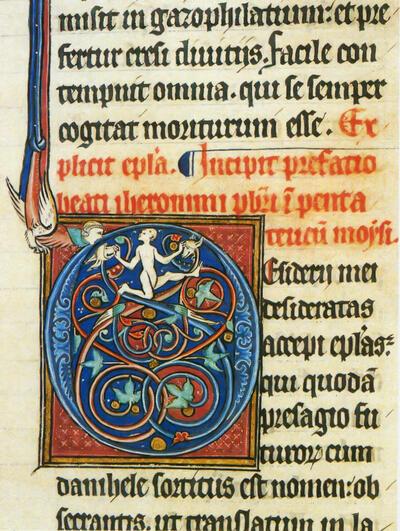 misit in gazophilatium: et pre
fertur cresi diuitijs. Facile con
tempnit omnia. qui se semper
cogitat moriturum esse. Ex
plicit epl'a. Incipit prefatio
beati iheronimi pb'ri ī penta
teucū moysi.
Desiderij mei
desideratas
accepi epl'as.
qui quodā
presagio fu
turoꝝ cum
danihele sortitus est nomen: ob
secrantis, ut translatum in la